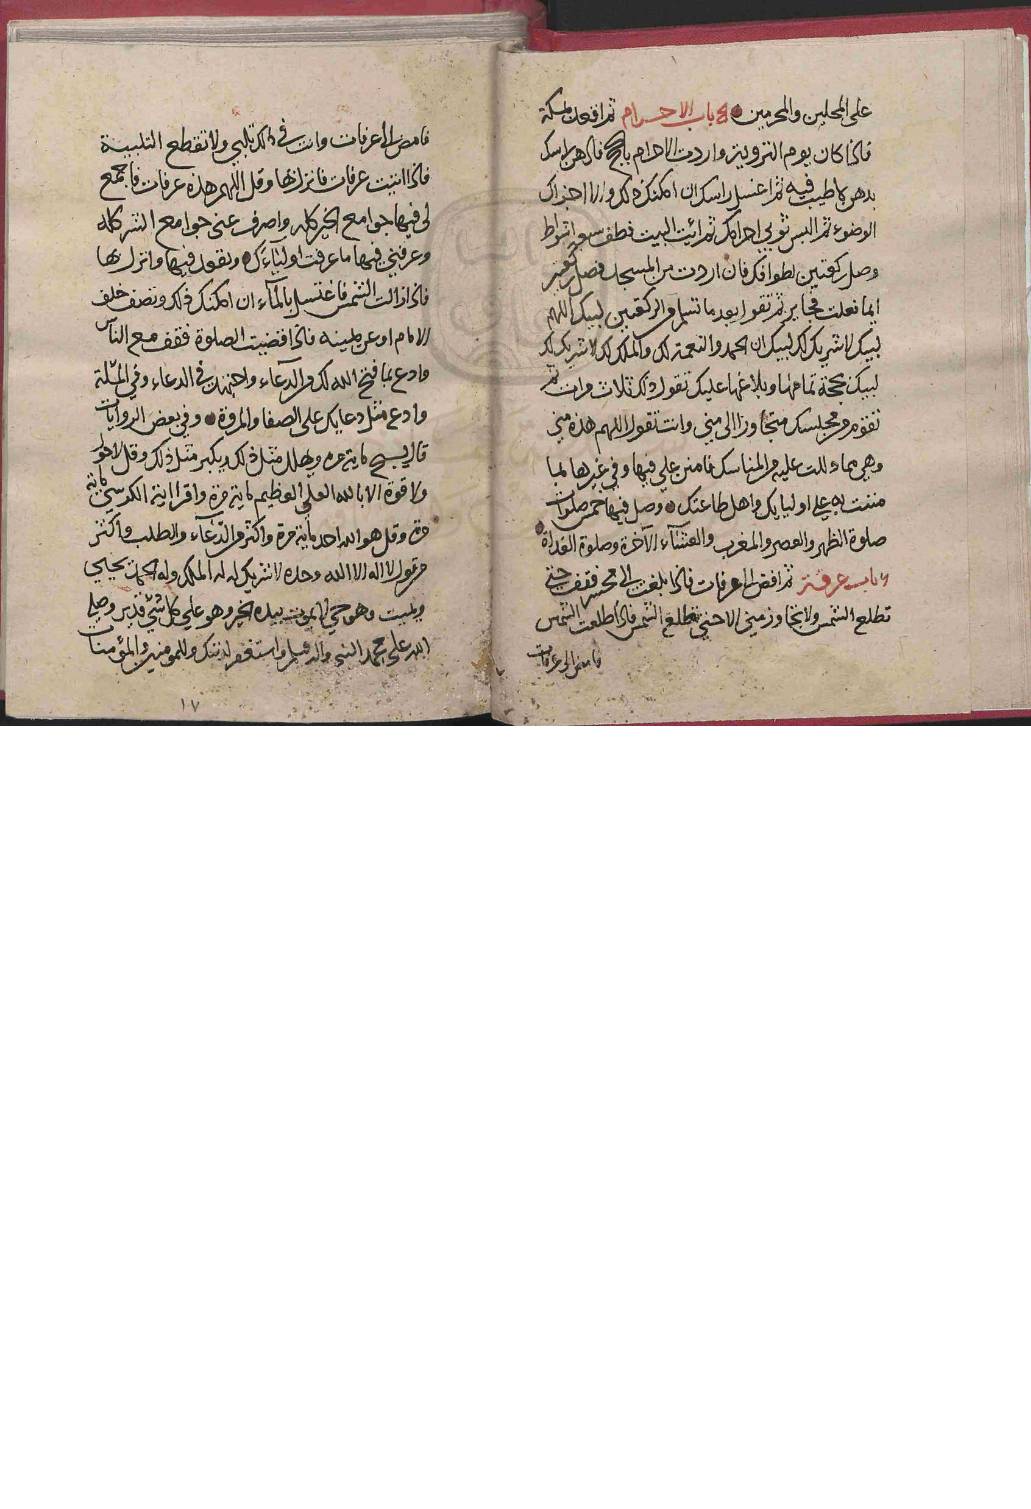 على المحلين والمحرمين باب الاحرام ثم اقعد بمكة
فاذا كان يوم التروية واردت الاحرام بالحج فادهن راسك
بدهن لا طيب فيه ثم اغتسل راسك ان امكنك ذلك والا اجزاك
الوضوء ثم البس ثوبي احرامك ثم ائت البيت فطف سبع اشواط
وصل ركعتين لطوافك فان اردت من المسجد فصل ركعتين
ايما فعلت فجايز ثم تقول بعد ما تسلم من الركعتين لبيك اللهم
لبيك لا شريك لك لبيك ان الحمد والنعمة لك والملك لك لا شريك لك
لبيك بحجة تمامها وبلاغها عليك تقول ذلك ثلاث مرات ثم
تقوم من مجلسك متجاوزا الى منى وانت تقول اللهم هذه منى
وهي مما دللت عليه من المناسك فامنن علي فيها وفي غيرها بما
مننت به على اوليايك واهل طاعتك وصل فيها خمس صلوات
صلوة الظهر والعصر والمغرب والعشآء الآخرة وصلوة الغداة
باب عرفة ثم افض الى عرفات فاذا بلغت الى محسر فقف حتى
تطلع الشمس ولا تجاوز منى الا حتى تطلع الشمس فاذا طلعت الشمس
فامض الى عرفات
فامض الى عرفات وانت في ذلك تلبي ولا تقطع التلبية
فاذا اتيت عرفات فانزلها وقل اللهم هذه عرفات فاجمع
لي فيها جوامع الخير كله واصرف عني جوامع الشر كله
وعرفني فيها ما عرفت اوليآءك وتقعد فيها وانزل بها
فاذا زالت الشمس فاغتسل بالمآء ان امكنك ذلك وتصف خلف
الامام او عن يمينه فاذا قضيت الصلوة فقف مع الناس
وادع بما فتح الله لك من الدعاء واجتهد في الدعاء وفي المسئلة
وادع مثل دعايك على الصفا والمروة وفي بعض الروايات
قال يسبح ماية مرة ويهلل مثل ذلك ويكبر مثل ذلك وقل لا حول
ولا قوة الا بالله العلي العظيم ماية مرة واقرا اية الكرسي ماية
مرة وقل هو الله احد ماية مرة واكثر من الدعاء والطلب واكثر
من قول لا اله الا الله وحده لا شريك له له الملك وله الحمد يحيي
ويميت وهو حي لا يموت بيده الخير وهو على كل شيء قدير وصلى
الله على محمد النبي واله وسلم واستغفر لذنبك وللمومنين والمؤمنات
١٧